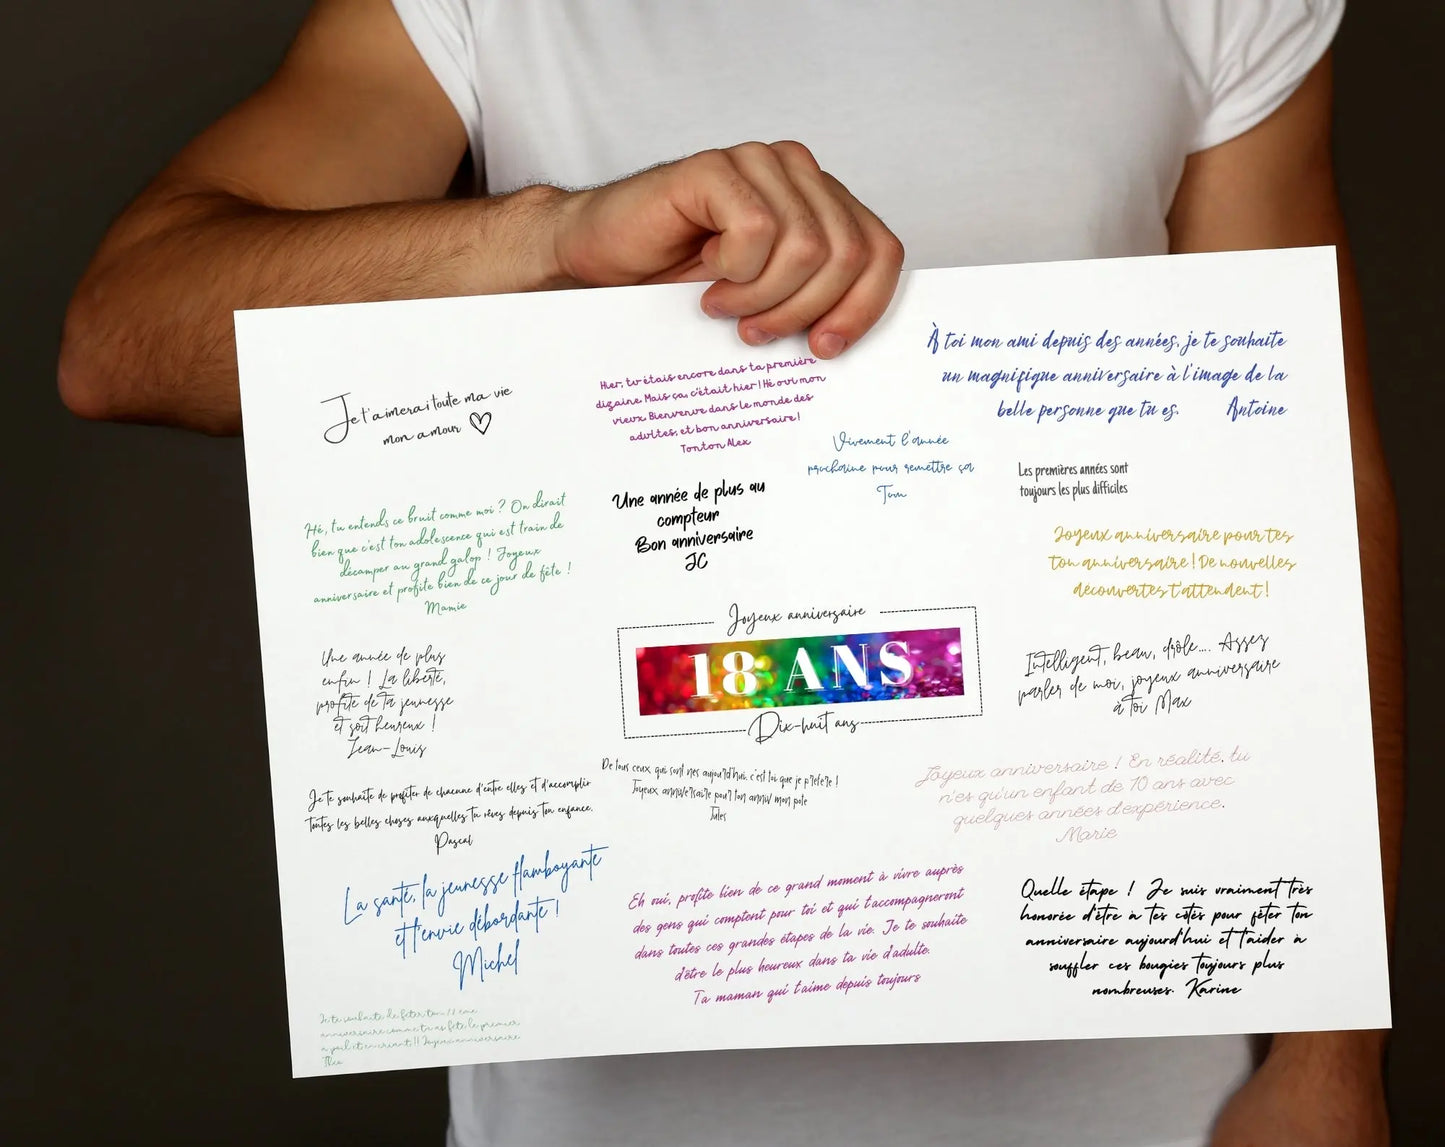 Je t'aimerai toute ma vie
mon amour
Hier, tu étais encore dans ta première
dizaine. Mais ça, c'était hier ! Hé oui mon
vieux. Bienvenue dans le monde des
adultes, et bon anniversaire !
Tonton Alex
À toi mon ami depuis des années, je te souhaite
un magnifique anniversaire à l'image de la
belle personne que tu es. Antoine
Vivement l'année
prochaine pour remettre ça
Tom
Les premières années sont
toujours les plus difficiles
Hé, tu entends ce bruit comme moi ? On dirait
bien que c'est ton adolescence qui est train de
décamper au grand galop ! Joyeux
anniversaire et profite bien de ce jour de fête !
Mamie
Une année de plus au
compteur
Bon anniversaire
JC
Joyeux anniversaire pour tes
ton anniversaire ! De nouvelles
découvertes t'attendent !
Joyeux anniversaire
18 ANS
Dix-huit ans
Une année de plus
enfin ! La liberté,
profite de ta jeunesse
et soit heureux !
Jean-Louis
Intelligent, beau, drôle.... Assez
parler de moi, joyeux anniversaire
à toi Max
De tous ceux, qui sont nés aujourd'hui, c'est toi que je préfère !
Joyeux anniversaire pour ton anniv mon pote
Jules
Joyeux anniversaire ! En réalité, tu
n'es qu'un enfant de 10 ans avec
quelques années d'expérience.
Marie
Je te souhaite de profiter de chacune d'entre elles et d'accomplir
toutes les belles choses auxquelles tu rêves depuis ton enfance.
Pascal
La santé, la jeunesse flamboyante
et l'envie débordante !
Michel
Eh oui, profite bien de ce grand moment à vivre auprès
des gens qui comptent pour toi et qui t'accompagneront
dans toutes ces grandes étapes de la vie. Je te souhaite
d'être le plus heureux dans ta vie d'adulte.
Ta maman qui t'aime depuis toujours
Quelle étape ! Je suis vraiment très
honorée d'être à tes côtés pour fêter ton
anniversaire aujourd'hui et t'aider à
souffler ces bougies toujours plus
nombreuses. Karine
Je te souhaite de fêter ton 18 ème
anniversaire comme tu as fêté le premier,
à poil et en criant !! Joyeux anniversaire